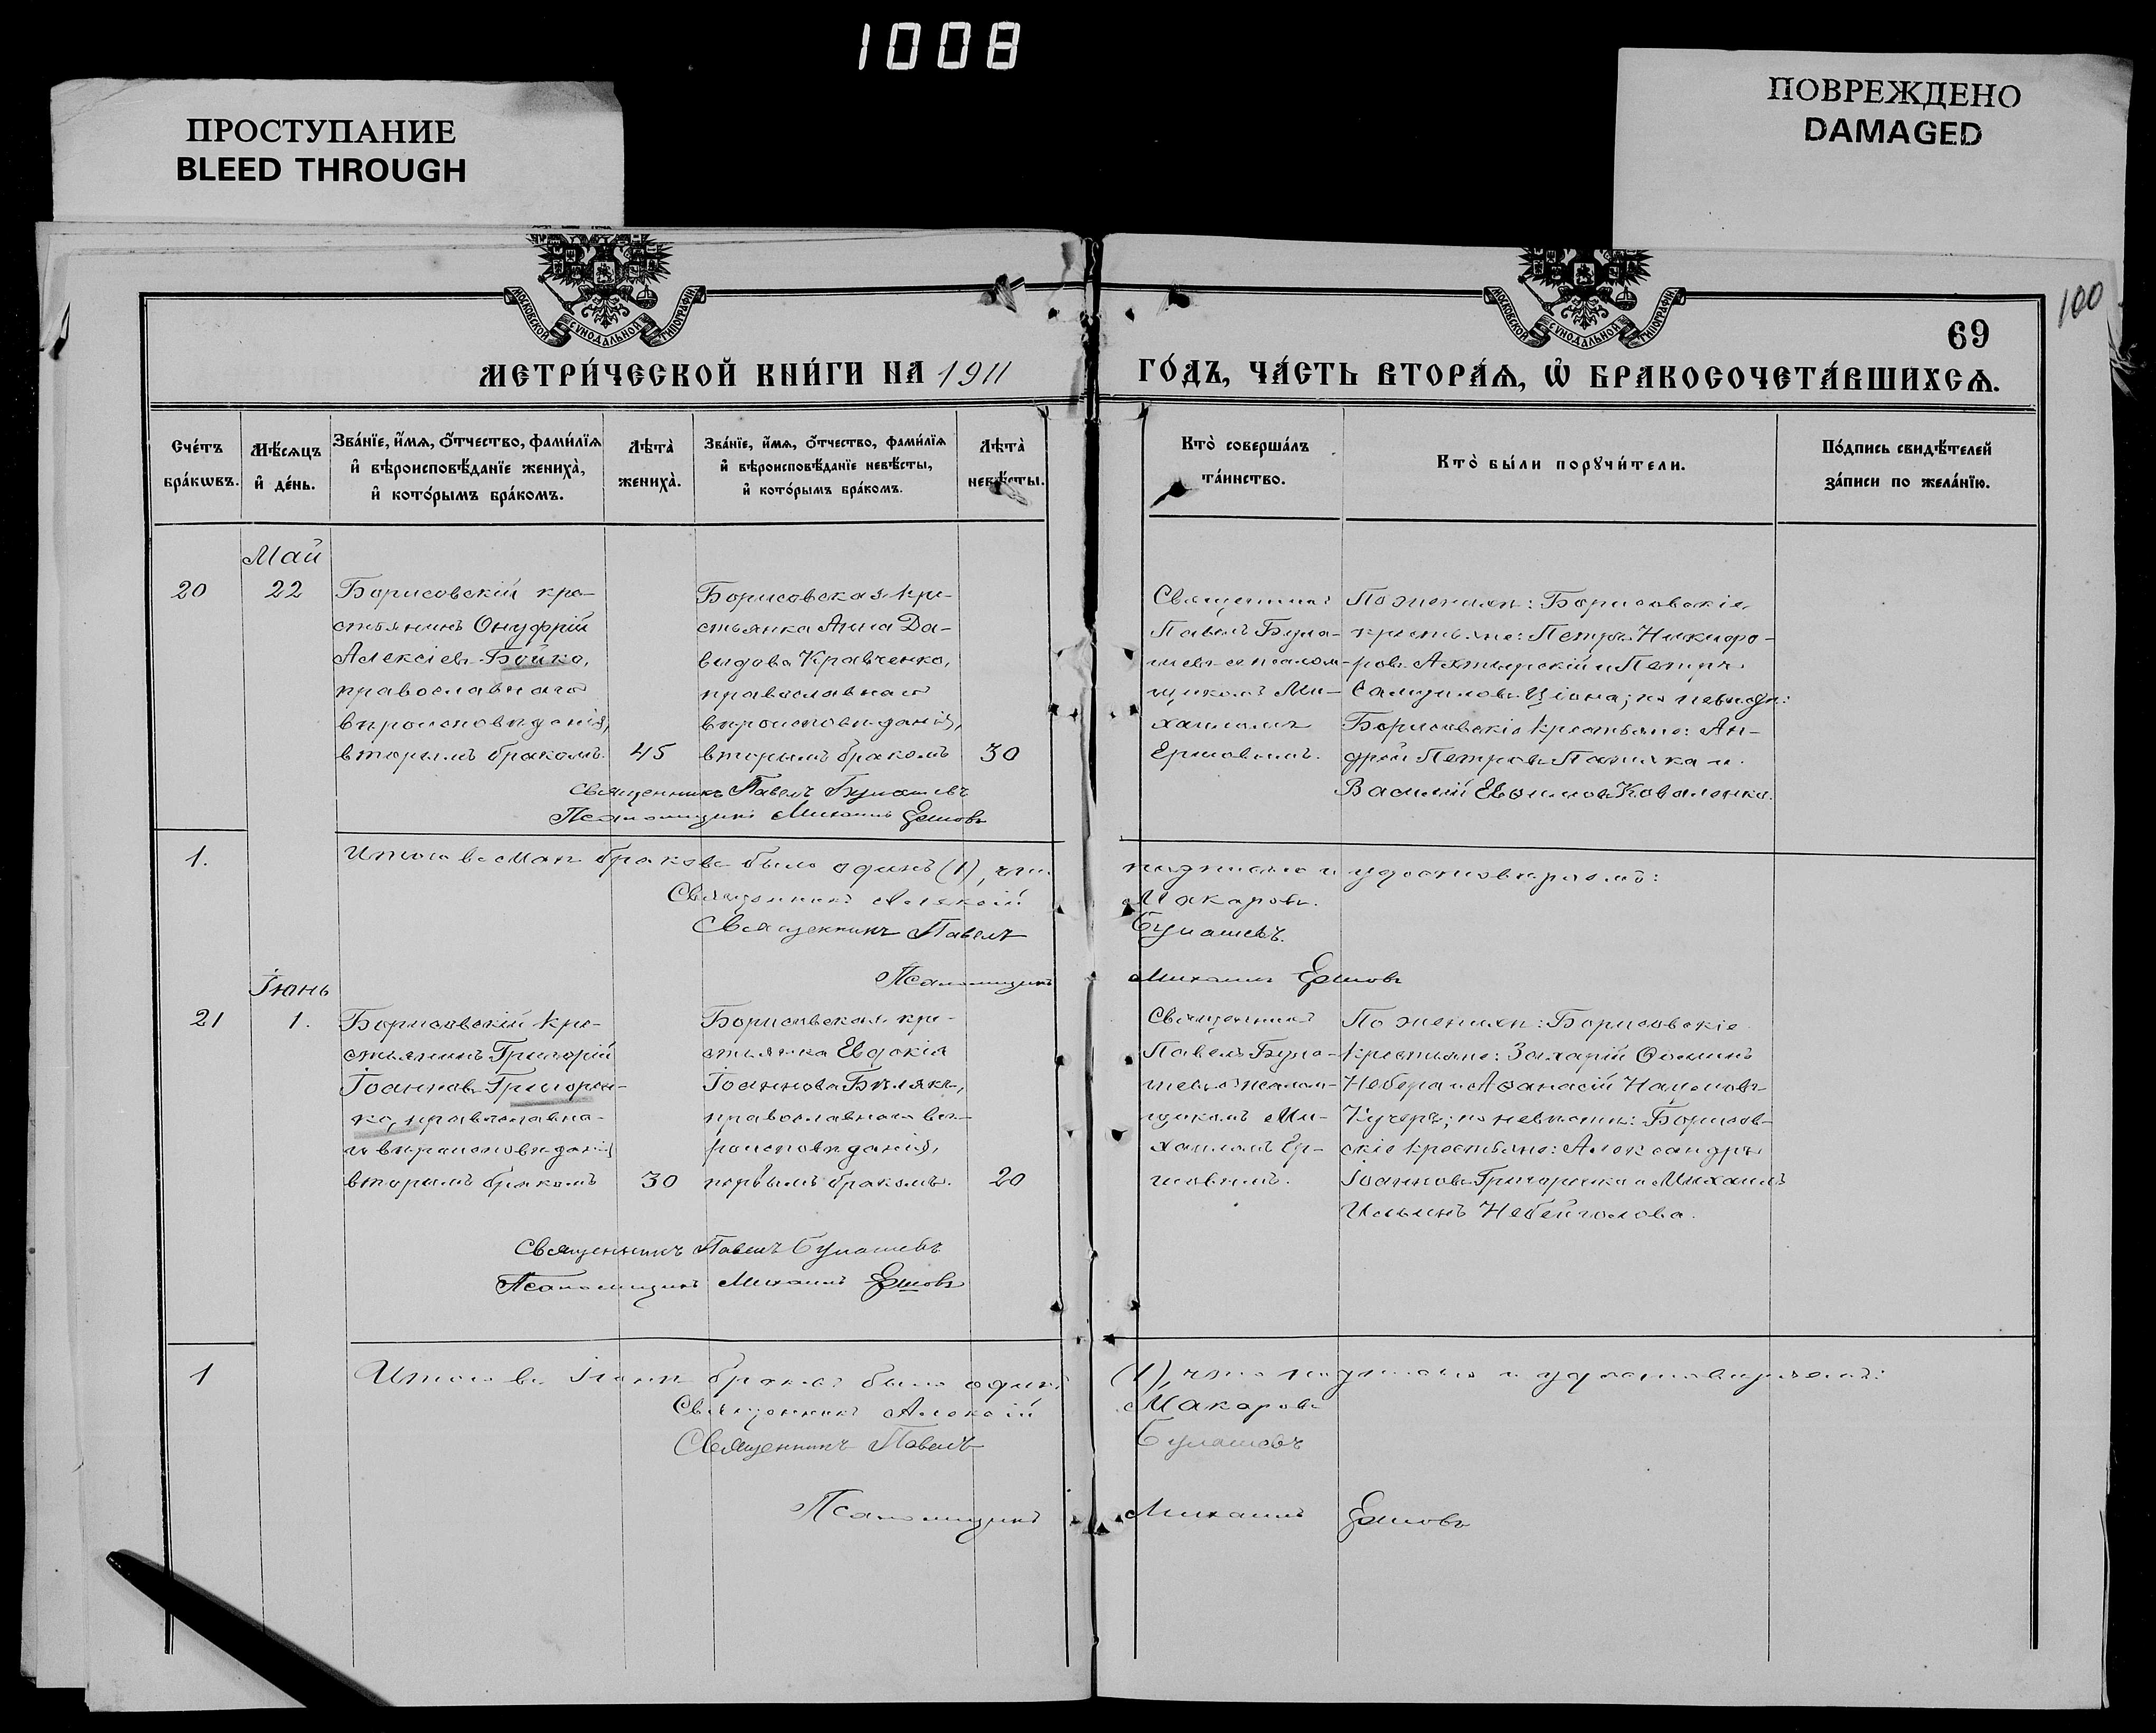 1008
ПРОСТУПАНИЕ
BLEED THROUGH
ПОВРЕЖДЕНО
DAMAGED
100
МОСКОВСКОЙ СѴНОДАЛЬНОЙ ТИПОГРАФІИ
МОСКОВСКОЙ СѴНОДАЛЬНОЙ ТИПОГРАФІИ
69
МЕТРИ́ЧЕСКОЙ КНИ́ГИ НА 1911 ГО́ДЪ, ЧА́СТЬ ВТОРА́Ѧ, Ѡ҆ БРАКОСОЧЕТА́ВШИХСѦ.
Сче́тъ бра́кѡвъ.
Мѣ́сѧцъ и҆ де́нь.
Зва́нїе, и҆́мѧ, ѻ҆́тчество, фами́лїѧ и҆ вѣроисповѣ́данїе жениха̀, и҆ кото́рымъ бра́комъ.
Лѣта̀ жениха̀.
Зва́нїе, и҆́мѧ, ѻ҆́тчество, фами́лїѧ и҆ вѣроисповѣ́данїе невѣ́сты, и҆ кото́рымъ бра́комъ.
Лѣта̀ невѣ́сты.
Кто̀ соверша́лъ та́инство.
Кто̀ бы́ли порꙋчи́тели.
По́дпись свидѣ́телей за́писи по жела́нїю.
Май
20
22
Борисовскій кре-
стьянинъ Онуфрій
Алексіевъ Бойко,
православнаго
вѣроисповѣданія,
вторымъ бракомъ.
45
Борисовская кре-
стьянка Анна Да-
видова Кравченко,
православнаго
вѣроисповѣданія,
вторымъ бракомъ
30
Священникъ
Павелъ Була-
шевъ съ псалом-
щикомъ Ми-
хаиломъ
Ершовымъ.
По женихѣ: Борисовскіе
крестьяне: Петръ Никифо-
ровъ Ахтырскій и Петръ
Самуиловъ; по невѣстѣ:
Борисовскіе крестьяне: Ан-
дрей Петровъ и
Василій Евѳимовъ Коваленко.
Священникъ Павелъ Булашевъ
Псаломщикъ Михаилъ Ершовъ
1.
Итого въ Маѣ браковъ было одинъ (1), что подписью удостовѣряемъ:
Священникъ Алексій Макаровъ.
Священникъ Павелъ Булашевъ.
Псаломщикъ Михаилъ Ершовъ
Іюнь
21
1.
Борисовскій кре-
стьянинъ Григорій
Іоанновъ Григорен-
ко, православна-
го вѣроисповѣданія
вторымъ бракомъ
30
Борисовская кре-
стьянка Евдокія
Іоаннова Бѣляка,
православнаго вѣ-
роисповѣданія,
первымъ бракомъ.
20
Священникъ
Павелъ Була-
шевъ съ псалом-
щикомъ Ми-
хаиломъ Ер-
шовымъ.
По женихѣ: Борисовскіе
крестьяне: Захарій Ѳоминъ
Небера и Аѳанасій Наумовъ
Кучеръ; по невѣстѣ: Борисов-
скіе крестьяне: Александръ
Іоанновъ Григоренко и Михаилъ
Ильинъ Небейголова.
Священникъ Павелъ Булашевъ
Псаломщикъ Михаилъ Ершовъ
1
Итого въ Іюнѣ браковъ было одинъ (1), что подписью и удостовѣряемъ:
Священникъ Алексій Макаровъ
Священникъ Павелъ Булашевъ
Псаломщикъ Михаилъ Ершовъ